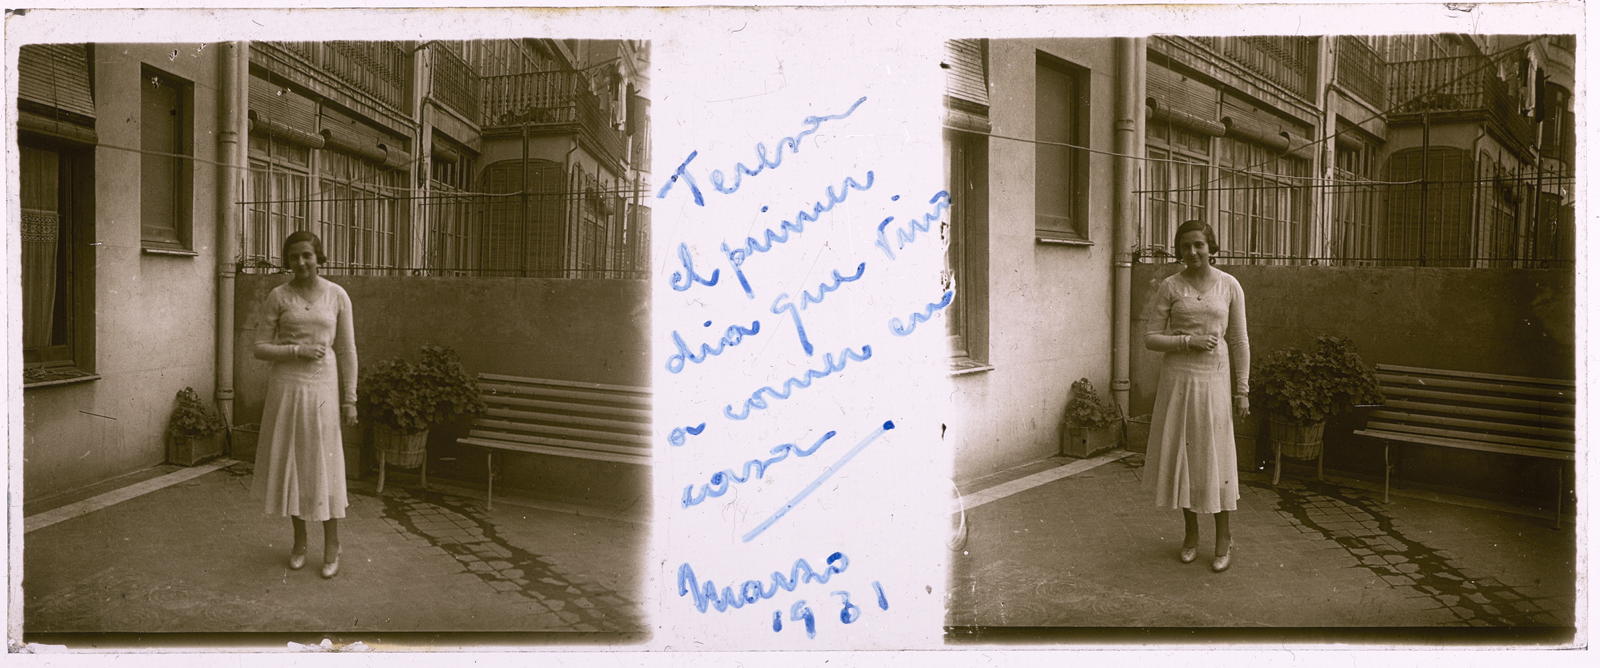 Teresa
el primer
dia que vino
a comer en
casa
Marzo
1931